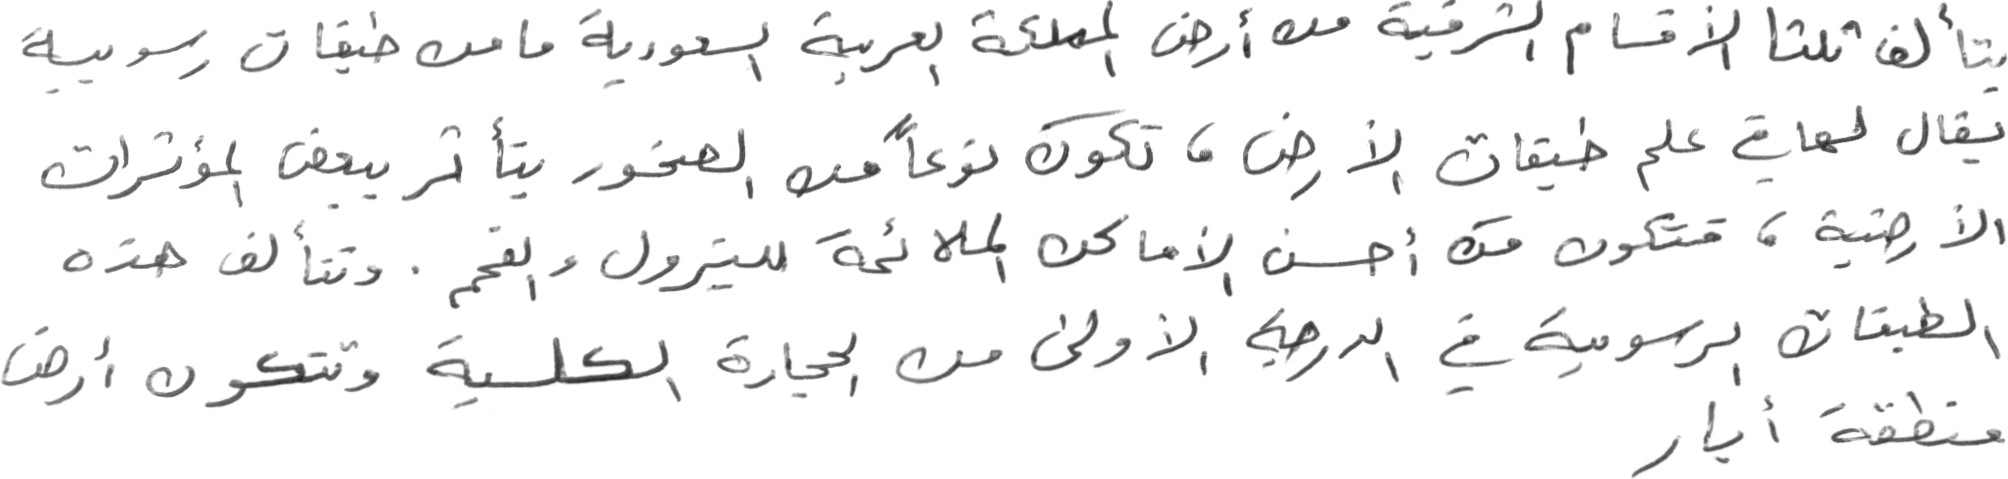 يتألف ثلثا الأقسام الشرقية من أرض المملكة العربية السعودية مامن طبقات رسوبية
يقال لها في علم طبقات الأرض، تكون نوعاً من الصخور يتأثر ببعض المؤثرات
الأرضية، فتتكون منه أحسن الأماكن الملائمة للبترول والفحم. وتتألف هذه
الطبقات الرسوبية في الدرجة الأولى من الحجارة الكلسية وتتكون أرض
منطقة أبار